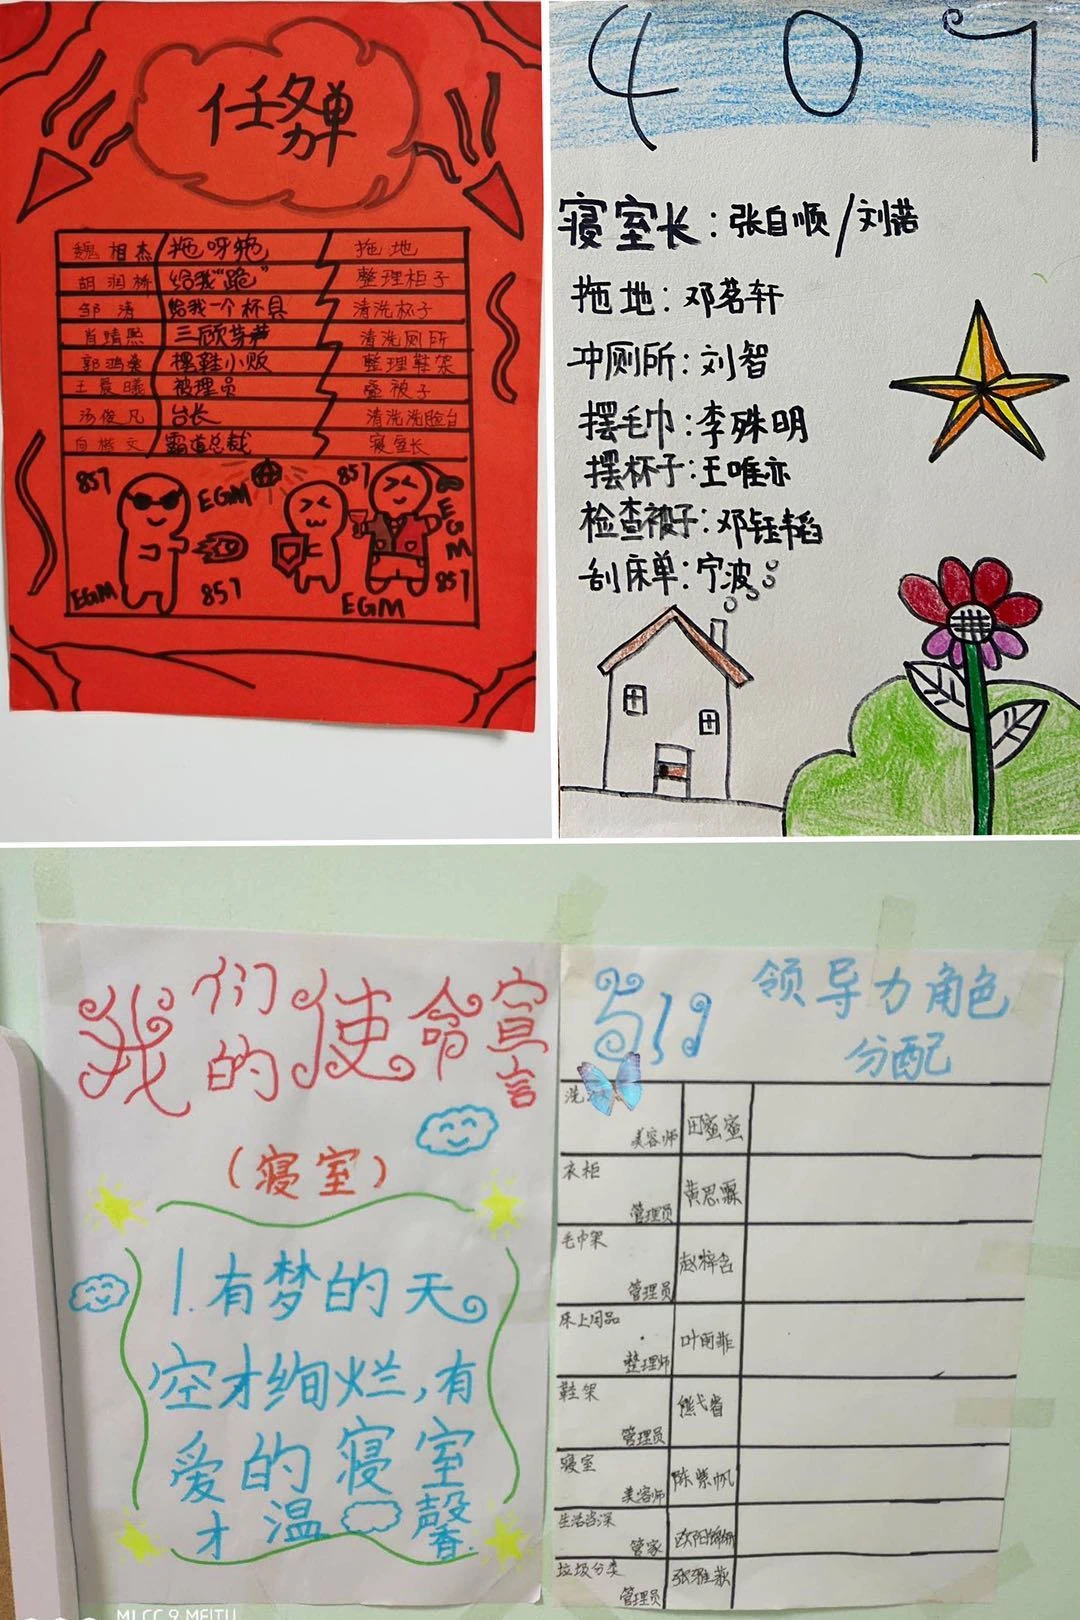 任务单
魏相杰 拖呀拖 拖地
胡润桥 给我"跪" 整理柜子
邹涛 给我一个杯具 清洗杯子
肖晴熙 三顾茅庐 清洗厕所
郭鸿燊 摆鞋小贩 整理鞋架
王晨曦 被理员 叠被子
汤俊凡 台长 清洗洗脸台
向楷文 霸道总裁 寝室长
857 EGM 857 EGM
EGM 857 EGM 857
409
寝室长:张自顺/刘诺
拖地:邓茗轩
冲厕所:刘智
摆毛巾:李殊明
摆杯子:王唯亦
检查被子:邓钰韬
刮床单:宁波
我们的使命宣言
(寝室)
1.有梦的天
空才绚烂,有
爱的寝室
才温馨.
519 领导力角色
分配
洗
美容师 田蜜蜜
衣柜
管理员 黄思霖
毛巾架
管理员 赵梓含
床上用品
整理师 叶雨菲
鞋架
管理员 熊弋睿
寝室
美容师 陈紫帆
生活咨深
管家 欧阳
垃圾分类
管理员 张雅萩
MI CC 9 MEITU